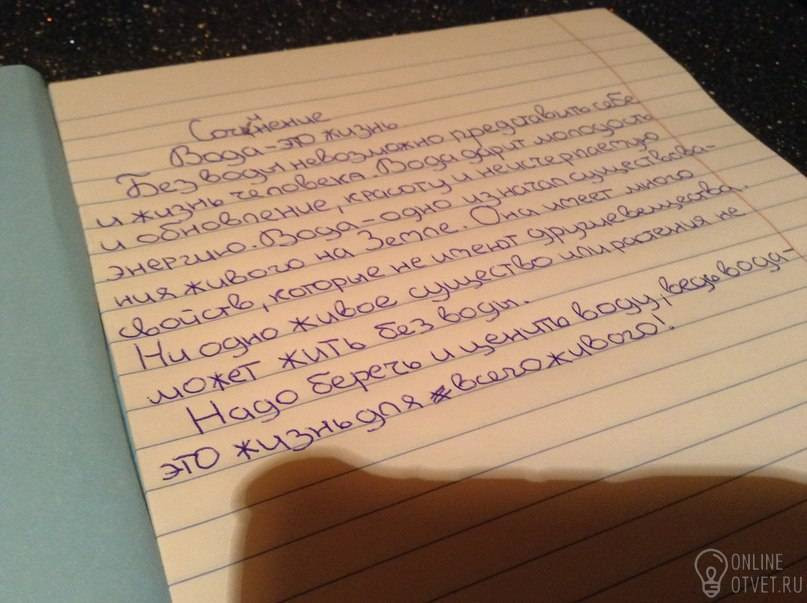 Сочинение
Вода - это жизнь
Без воды невозможно представить себе
и жизнь человека. Вода дарит молодость
и обновление, красоту и неисчерпаемую
энергию. Вода - одно из начал существова-
ния живого на Земле. Она имеет много
свойств, которые не имеют другие вещества.
Ни одно живое существо или растения не
может жить без воды.
Надо беречь и ценить воду, ведь вода -
это жизнь для всего живого!
ONLINE
OTVET.RU